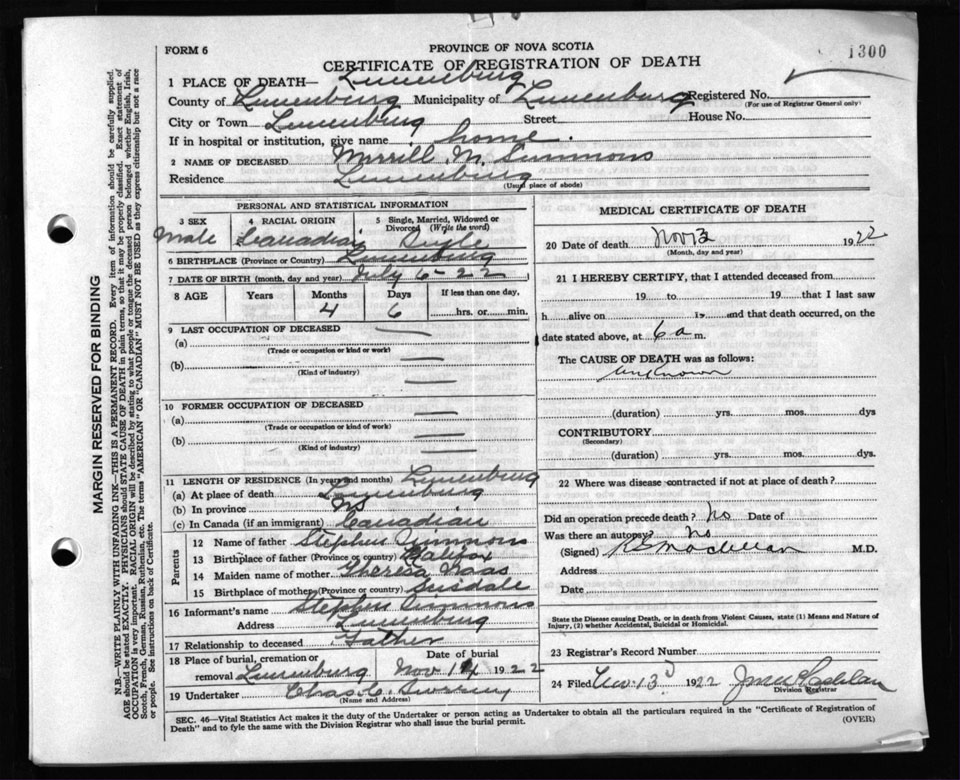 FORM 6
PROVINCE OF NOVA SCOTIA
1300
CERTIFICATE OF REGISTRATION OF DEATH
1 PLACE OF DEATH— Lunenburg
County of Lunenburg Municipality of Lunenburg Registered No.
(For use of Registrar General only)
City or Town Lunenburg Street House No.
If in hospital or institution, give name home
2 NAME OF DECEASED Merrill N. Simmons
Residence Lunenburg
(Usual place of abode)
PERSONAL AND STATISTICAL INFORMATION
3 SEX Male
4 RACIAL ORIGIN Canadian
5 Single, Married, Widowed or Divorced (Write the word) Single
6 BIRTHPLACE (Province or Country) Lunenburg
7 DATE OF BIRTH (month, day and year) July 6-22
8 AGE Years Months Days If less than one day,
4 6 hrs. or min.
9 LAST OCCUPATION OF DECEASED
(a) —
(Trade or occupation or kind or work)
(b) —
(Kind of industry)
—
10 FORMER OCCUPATION OF DECEASED
(a) —
(Trade or occupation or kind or work)
(b) —
(Kind of industry)
—
11 LENGTH OF RESIDENCE (In years and months) Lunenburg
(a) At place of death Lunenburg
(b) In province NS
(c) In Canada (if an immigrant) Canadian
Parents
12 Name of father Stephen Simmons
13 Birthplace of father (Province or country) Halifax
14 Maiden name of mother Theresa Naas
15 Birthplace of mother (Province or country)
16 Informant's name Stephen Simmons
Address Lunenburg
17 Relationship to deceased Father
18 Place of burial, cremation or removal Lunenburg
Date of burial Nov 14 1922
19 Undertaker Chas. C.
(Name and Address)
MEDICAL CERTIFICATE OF DEATH
20 Date of death Nov 13 1922
(Month, day and year)
21 I HEREBY CERTIFY, that I attended deceased from
19 to 19 that I last saw
h alive on 19 and that death occurred, on the
date stated above, at 6 a m.
The CAUSE OF DEATH was as follows:
Unknown
(duration) yrs. mos. dys
CONTRIBUTORY
(Secondary)
(duration) yrs. mos. dys
22 Where was disease contracted if not at place of death?
Did an operation precede death? No Date of
Was there an autopsy? No
(Signed) Maclellan M.D.
Address
Date
State the Disease causing Death, or in death from Violent Causes, state (1) Means and Nature of Injury, (2) whether Accidental, Suicidal or Homicidal.
23 Registrar's Record Number
24 Filed Nov 13 1922
Division Registrar
SEC. 46—Vital Statistics Act makes it the duty of the Undertaker or person acting as Undertaker to obtain all the particulars required in the "Certificate of Registration of
Death" and to fyle the same with the Division Registrar who shall issue the burial permit.
(OVER)
MARGIN RESERVED FOR BINDING
N.B.—WRITE PLAINLY WITH UNFADING INK—THIS IS A PERMANENT RECORD. Every item of information should be carefully supplied.
AGE should be stated EXACTLY. PHYSICIANS should STATE CAUSE OF DEATH in plain terms, so that it may be properly classified. Exact statement of
OCCUPATION is very important. RACIAL ORIGIN will be described by stating to what people or tongue the deceased person belonged whether English, Irish,
Scotch, French, German, Russian, Ruthenian, etc. The terms "AMERICAN" OR "CANADIAN" MUST NOT BE USED as they express citizenship but not a race
or people. See instructions on back of Certificate.